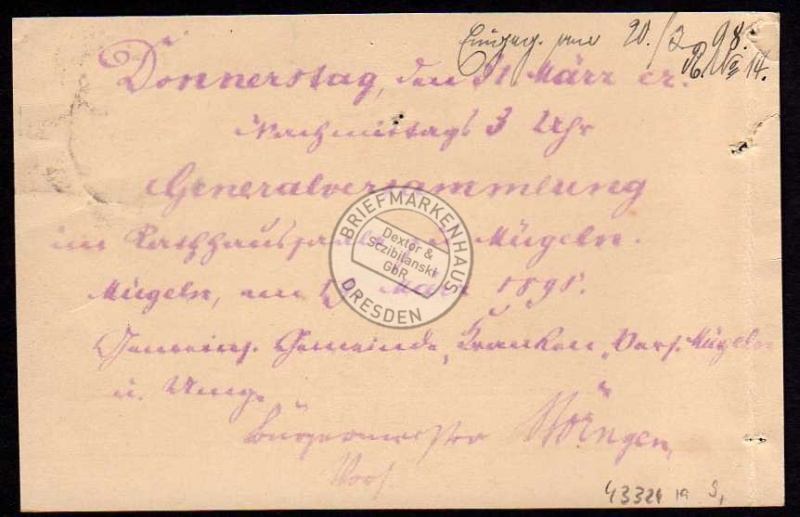 Eingeg. am 20./3. 98.
Donnerstag, den 31. März cr.
Nachmittags 3 Uhr
Generalversammlung
im Rathhaussaale Mügeln.
Mügeln, am März 1898.
Gemeins. Gemeinde, Kranken, Vers. Mügeln
u. Umg.
Bürgermeister
Vors.
BRIEFMARKENHAUS
Dextor &
Sczibilanski
GbR
DRESDEN
43324